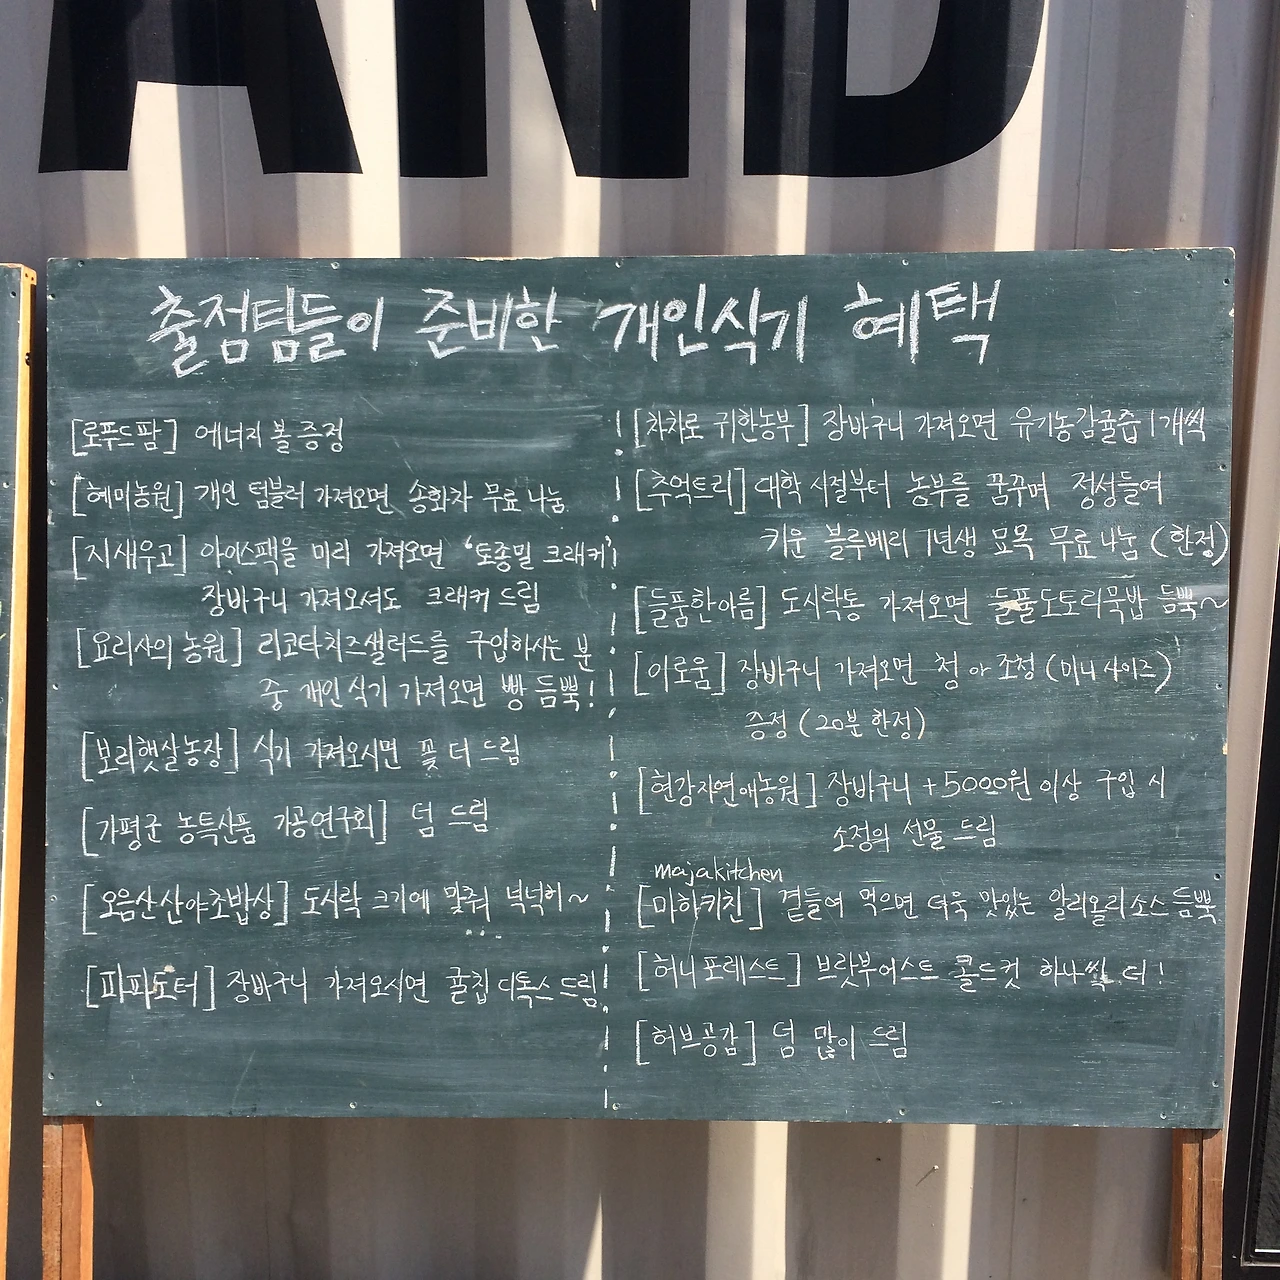 AND
출점팀들이 준비한 개인식기 혜택
[로푸드팜] 에너지 볼 증정
[혜미농원] 개인 텀블러 가져오면 송화차 무료 나눔
[지새우고] 아이스팩을 미리 가져오면 '토종밀 크래커'
장바구니 가져오셔도 크래커 드림
[요리사의 농원] 리코타치즈샐러드를 구입하시는 분
중 개인식기 가져오면 빵 듬뿍!
[보리햇살농장] 식기 가져오시면 꽃 더 드림
[가평군 농특산품 가공연구회] 덤 드림
[오음산산야초밥상] 도시락 크기에 맞춰 넉넉히~
[파파도터] 장바구니 가져오시면 귤칩 디톡스 드림!
[차차로 귀한농부] 장바구니 가져오면 유기농감귤즙 1개씩
[추억트리] 대학 시절부터 농부를 꿈꾸며 정성들여
키운 블루베리 1년생 묘목 무료 나눔 (한정)
[들품한아름] 도시락통 가져오면 들풀도토리묵밥 듬뿍~
[이로움] 장바구니 가져오면 청 아 조청 (미니 사이즈)
증정 (20분 한정)
[현강자연애농원] 장바구니 + 5000원 이상 구입 시
소정의 선물 드림
majakitchen
[마하키친] 곁들여 먹으면 더욱 맛있는 알리올리 소스 듬뿍
[허니포레스트] 브랏부어스트 콜드컷 하나씩 더!
[허브공감] 덤 많이 드림